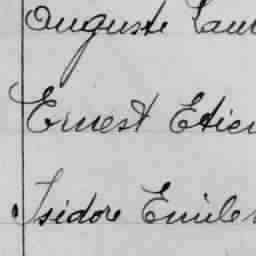 Auguste Lau
Ernest Etien
Isidore Emile